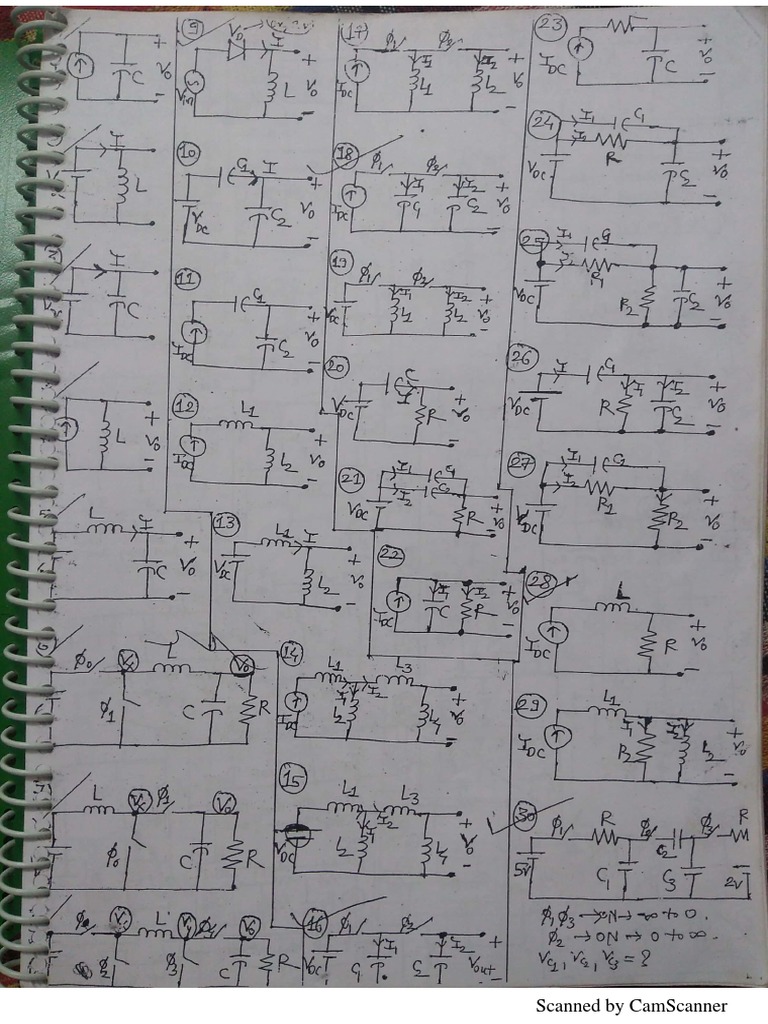 C
V₀
+
−
I
L
I
C
L
V₀
+
−
L
I
C
V₀
+
−
φ₀
Vx
L
V₀
φ₁
C
R
L
Vx
φ₁
V₀
φ₀
C
R
Vx
L
Vy
V₀
φ₂
φ₃
C
R
9
VD
I
Vin
L
V₀
+
−
10
C1
I
VDC
C2
V₀
+
−
11
C1
IDC
C2
V₀
+
−
12
L1
IDC
L2
V₀
+
−
13
L1
I
VDC
L2
V₀
+
−
14
L1
L3
I1
I2
IDC
L2
L4
V₀
+
−
15
L1
L3
I1
I2
VDC
L2
L4
V₀
+
−
16
φ1
φ2
I1
I2
VDC
C1
C2
Vout
+
−
17
φ1
φ2
I1
I2
IDC
L1
L2
V₀
+
−
18
φ1
φ2
I1
I2
IDC
C1
C2
V₀
+
−
19
φ1
φ2
I1
I2
VDC
L1
L2
V₀
+
−
20
C
I
VDC
R
V₀
+
−
21
I1
C1
I2
C2
VDC
R
V₀
+
−
22
I1
I2
IDC
C
R
V₀
+
−
23
R
IDC
C
V₀
+
−
24
I1
C1
I2
R
VDC
C2
V₀
+
−
25
I1
C1
I2
R1
VDC
R2
C2
V₀
+
−
26
I
C1
I1
I2
VDC
R
C2
V₀
+
−
27
I1
C1
I2
R1
VDC
R2
V₀
+
−
28
L
IDC
R
V₀
+
−
29
L1
I1
I2
IDC
R2
L2
V₀
+
−
30
φ1
R
φ2
C2
φ3
R
5V
C1
C3
2V
φ1 φ3 → ON → 0 to ∞
φ2 → ON → 0 to ∞
Vc1, Vc2, Vc3 = ?
Scanned by CamScanner